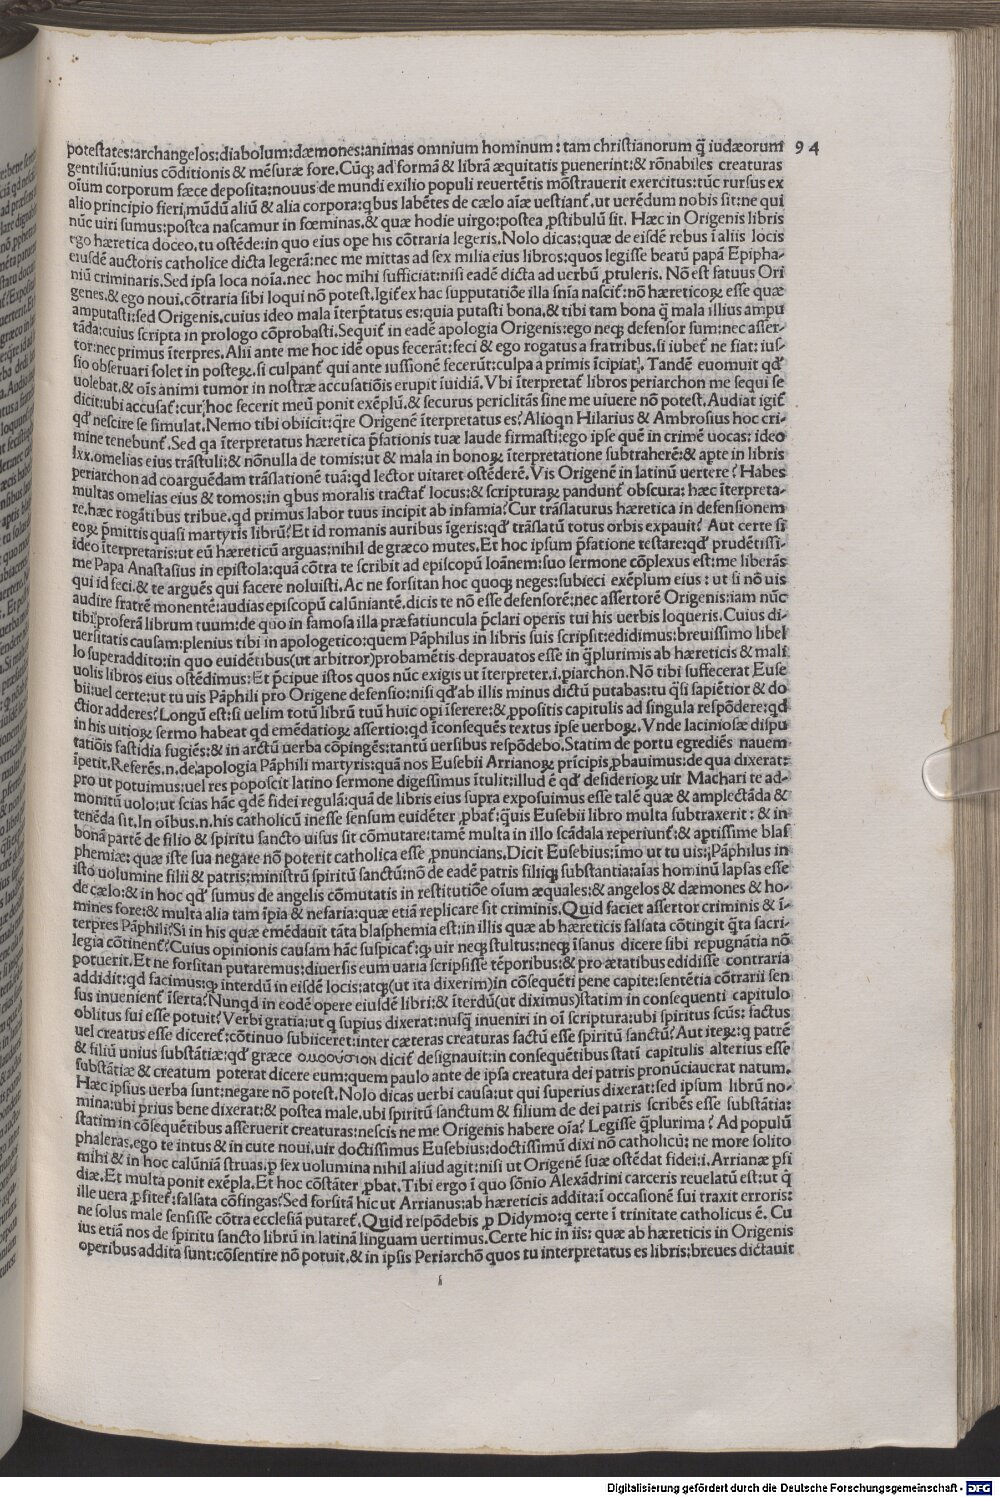 potestates:archangelos:diabolum:dæmones:animas omnium hominum: tam christianorum q̃ iudæorum 94
gentiliū:unius cōditionis & mēsuræ fore.Cūq; ad formā & librā æquitatis puenerint:& rōnabiles creaturas
oīum corporum fæce deposita:nouus de mundi exilio populi reuertētis mōstrauerit exercitus:tūc rursus ex
alio principio fieri,mūdū aliū & alia corpora:qbus labētes de cælo aīæ uestiant̃.ut uerēdum nobis sit:ne qui
nūc uiri sumus:postea nascamur in fœminas.& quæ hodie uirgo:postea pstibulū sit. Hæc in Origenis libris
ego hæretica doceo,tu ostēde:in quo eius ope his cōtraria legeris.Nolo dicas:quæ de eisdē rebus ī aliis locis
eiusdē auctoris catholice dicta legerā:nec me mittas ad sex milia eius libros:quos legisse beatū papā Epipha-
niū criminaris.Sed ipsa loca noīa.nec hoc mihi sufficiat:nisi eadē dicta ad uerbū ptuleris. Nō est fatuus Ori
genes.& ego noui.cōtraria sibi loqui nō potest.Igit̃ ex hac supputatiōe illa snīa nascit̃:nō hæreticoꝝ esse quæ
amputasti:sed Origenis.cuius ideo mala īterp̃tatus es:quia putasti bona.& tibi tam bona q̃ mala illius ampu
tāda:cuius scripta in prologo cōprobasti.Sequit̃ in eadē apologia Origenis:ego neq; defensor sum:nec asser-
tor:nec primus īterpres.Alii ante me hoc idē opus fecerāt:feci & ego rogatus a fratribus.si iubet̃ ne fiat: ius-
sio obseruari solet in posteꝝ.si culpant̃ qui ante iussionē fecerūt:culpa a primis īcipiat̃. Tandē euomuit qd̃
uolebat.& oīs animi tumor in nostræ accusatiōis erupit īuidiā.Vbi īterpretat̃ libros periarchon me sequi se
dicit:ubi accusat̃:cur hoc fecerit meū ponit exēplū.& securus periclitās sine me uiuere nō potest.Audiat igit̃
qd̃ nescire se simulat.Nemo tibi obiicit:q̄re Origenē īterpretatus es?Alioqn Hilarius & Ambrosius hoc cri-
mine tenebunt̃.Sed qa īterpretatus hæretica p̃fationis tuæ laude firmasti:ego ipse quē in crimē uocas: ideo
lxx.omelias eius trāstuli:& nōnulla de tomis:ut & mala in bonoꝝ īterpretatione subtraherē:& apte in libris
periarchon ad coarguēdam trāslationē tuā:qd lector uitaret ostēderē.Vis Origenē in latinū uertere? Habes
multas omelias eius & tomos:in qbus moralis tractat̃ locus:& scripturaꝝ pandunt̃ obscura: hæc īterpreta-
re.hæc rogātibus tribue.qd primus labor tuus incipit ab infamia?Cur trāslaturus hæretica in defensionem
eoꝝ p̃mittis quasi martyris librū?Et id romanis auribus īgeris:qd̃ trāslatū totus orbis expauit? Aut certe si
ideo īterpretaris:ut eū hæreticū arguas:nihil de græco mutes.Et hoc ipsum p̃fatione testare:qd̃ prudētissi-
me Papa Anastasius in epistola:quā cōtra te scribit ad episcopū Ioānem:suo sermone cōplexus est:me liberās
qui id feci.& te arguēs qui facere noluisti.Ac ne forsitan hoc quoq; neges:subieci exēplum eius : ut si nō uis
audire fratrē monentē:audias episcopū calūniantē.dicis te nō esse defensorē:nec assertorē Origenis:iam nūc
tibi proferā librum tuum:de quo in famosa illa præfatiuncula p̃clari operis tui his uerbis loqueris.Cuius di-
uersitatis causam:plenius tibi in apologetico:quem Pāphilus in libris suis scripsit:edidimus:breuissimo libel
lo superaddito:in quo euidētibus(ut arbitror)probamētis deprauatos esse in q̃plurimis ab hæreticis & mali
uolis libros eius ostēdimus:Et p̃cipue istos quos nūc exigis ut īterpreter.i.piarchon.Nō tibi suffecerat Euse
bii:uel certe:ut tu uis Pāphili pro Origene defensio:nisi qd̃ ab illis minus dictū putabas:tu q̃si sapiētior & do
ctior adderes?Longū est:si uelim totū librū tuū huic opi īserere:& ppositis capitulis ad singula respōdere:qd
in his uitioꝝ sermo habeat qd emēdatioꝝ assertio:qd īconsequēs textus ipse uerboꝝ.Vnde laciniosæ dispu
tatiōis fastidia fugiēs:& in arctū uerba cōpingēs:tantū uersibus respōdebo.Statim de portu egrediēs nauem
īpetit.Referēs.n.de apologia Pāphili martyris:quā nos Eusebii Arrianoꝝ prīcipis pbauimus:de qua dixerat:
pro ut potuimus:uel res poposcit latino sermone digessimus ītulit:illud ē qd̃ desiderioꝝ uir Machari te ad-
monitū uolo:ut scias hāc qdē fidei regulā:quā de libris eius supra exposuimus esse talē quæ & amplectāda &
tenēda sit.In oībus.n.his catholicū inesse sensum euidēter pbat̃:q̄uis Eusebii libro multa subtraxerit : & in
bonā partē de filio & spiritu sancto uisus sit cōmutare:tamē multa in illo scādala reperiunt̃:& aptissime blas
phemiæ: quæ iste sua negare nō poterit catholica esse pnuncians.Dicit Eusebius:imo ut tu uis:Pāphilus in
isto uolumine filii & patris:ministrū spiritū sanctū:nō de eadē patris filiiq; substantia:aīas hominū lapsas esse
de cælo:& in hoc qd̃ sumus de angelis cōmutatis in restitutiōe oīum æquales:& angelos & dæmones & ho-
mines fore:& multa alia tam īpia & nefaria:quæ etiā replicare sit criminis.Quid faciet assertor criminis & ī-
terpres Pāphili?Si in his quæ emēdauit tāta blasphemia est:in illis quæ ab hæreticis falsata cōtingit q̃ta sacri-
legia cōtinent̃?Cuius opinionis causam hāc suspicat̃:ꝙ uir neq; stultus:neq; īsanus dicere sibi repugnātia nō
potuerit.Et ne forsitan putaremus:diuersis eum uaria scripsisse tēporibus:& pro ætatibus edidisse contraria
addidit:qd facimus:ꝙ interdū in eisdē locis:atq;(ut ita dixerim)in cōsequēti pene capite:sentētia cōtrarii sen
sus inuenient̃ īserta?Nunqd in eodē opere eiusdē libri:& īterdū(ut diximus)statim in consequenti capitulo
oblitus sui esse potuit?Verbi gratia:ut q supius dixerat:nusq̃ inueniri in oī scriptura:ubi spiritus scūs: factus
uel creatus esse diceret̃:cōtinuo subiiceret:inter cæteras creaturas factū esse spiritū sanctū?Aut iteꝝ:q patrē
& filiū unius substātiæ:qd̃ græce ομοουσιον dicit̃ designauit:in consequētibus statī capitulis alterius esse
substātiæ & creatum poterat dicere eum:quem paulo ante de ipsa creatura dei patris pronūciauerat natum.
Hæc ipsius uerba sunt:negare nō potest.Nolo dicas uerbi causa:ut qui superius dixerat:sed ipsum librū no-
mina:ubi prius bene dixerat:& postea male.ubi spiritū sanctum & filium de dei patris scribēs esse substātia:
statim in cōsequētibus asseruerit creaturas:nescis ne me Origenis habere oīa? Legisse q̃plurima ? Ad populū
phaleras.ego te intus & in cute noui.uir doctissimus Eusebius:doctissimū dixi nō catholicū: ne more solito
mihi & in hoc calūniā struas.p sex uolumina nihil aliud agit:nisi ut Origenē suæ ostēdat fidei:i.Arrianæ pfi
diæ.Et multa ponit exēpla.Et hoc cōstāter pbat.Tibi ergo ī quo sōnio Alexādrini carceris reuelatū est:ut q̃
ille uera pfitet̃:falsata cōfingas?Sed forsitā hic ut Arrianus:ab hæreticis addita:ī occasionē sui traxit erroris:
ne solus male sensisse cōtra ecclesiā putaret̃.Quid respōdebis p Didymo:q certe ī trinitate catholicus ē. Cu
ius etiā nos de spiritu sancto librū in latinā linguam uertimus.Certe hic in iis: quæ ab hæreticis in Origenis
operibus addita sunt:cōsentire nō potuit.& in ipsis Periarchō quos tu interpretatus es libris:breues dictauit
h
Digitalisierung gefördert durch die Deutsche Forschungsgemeinschaft - DFG